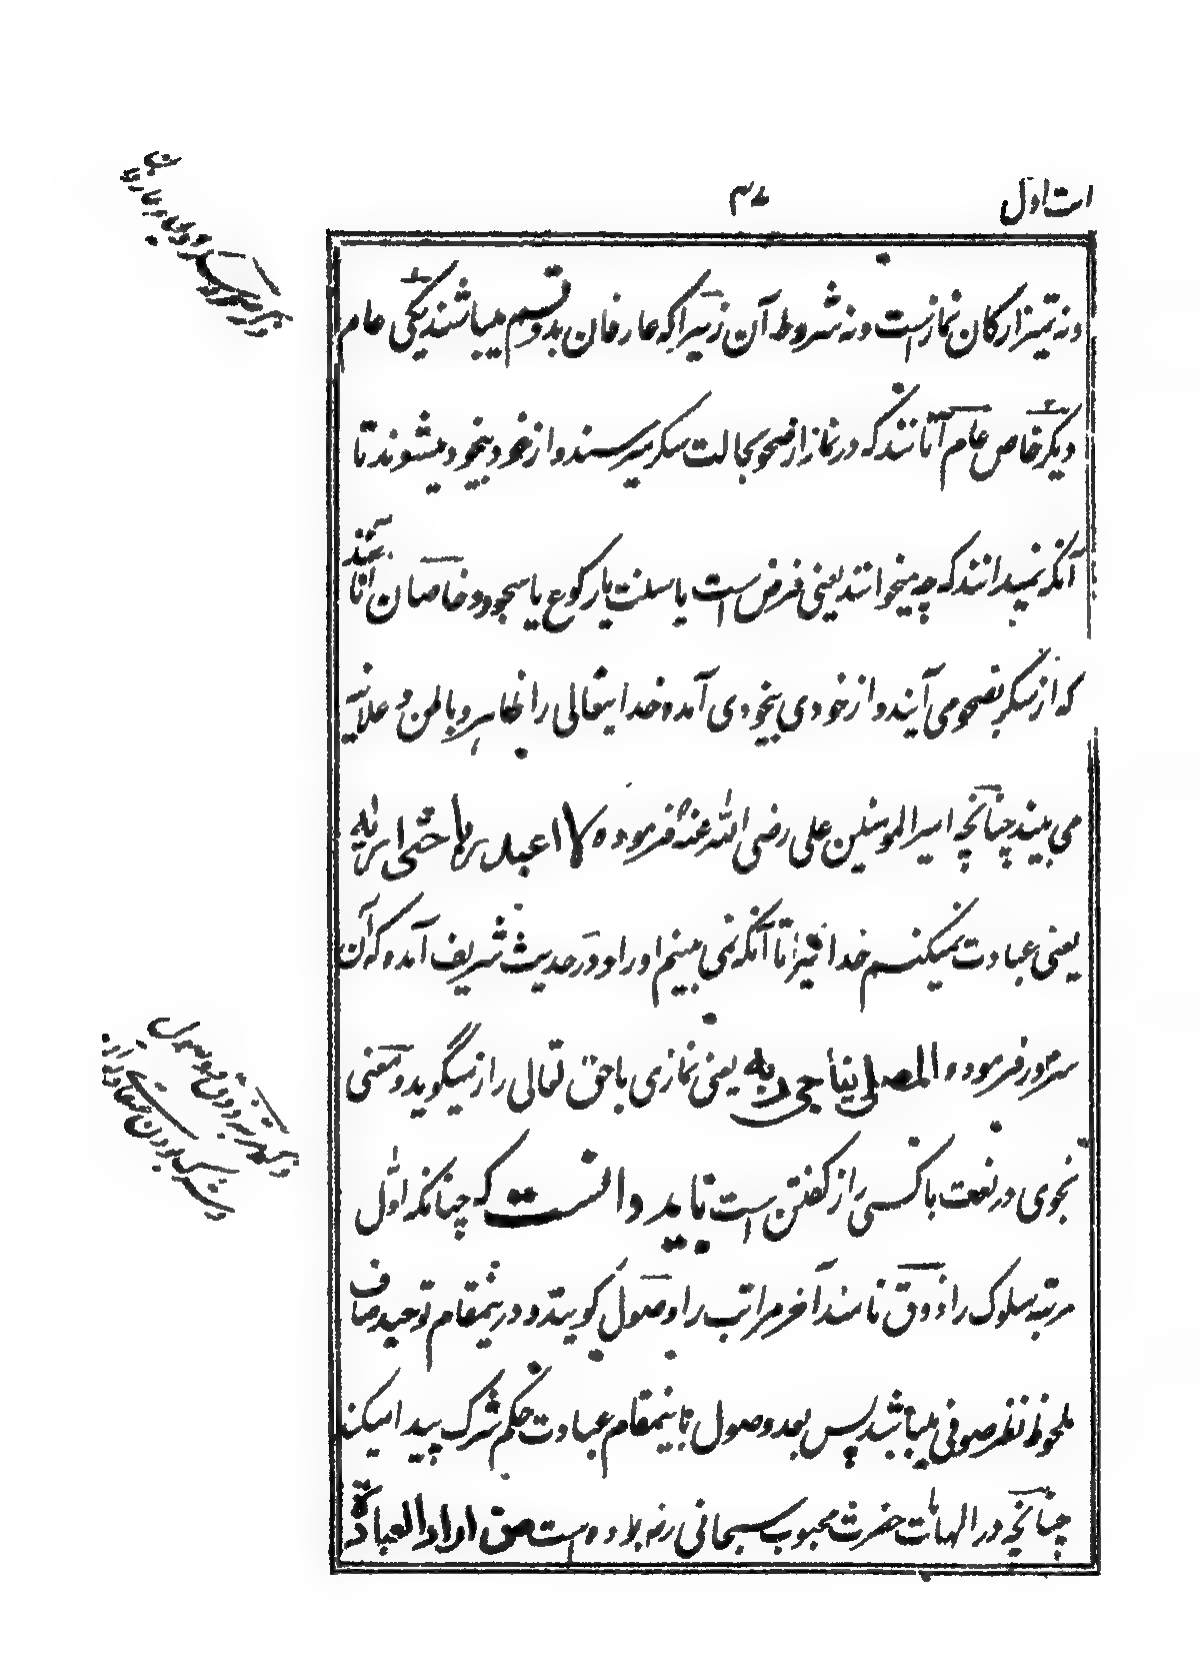 ات اول
۳۷
ونه تمیز ارکان نماز است ونه شروط آن زیراکه عارفان بدو قسم میباشند یکی عام
دیگر خاص عام آنانند که در نماز از صحو بحالت سکر میرسند و از خود بیخود میشوند تا
آنکه نمیدانند که چه میخوانند یعنی فرض است یا سنت یا رکوع یا سجود و خاصان آنانند
که از سکر بصحو می آیند و از خودی بیخودی آمده خدایتعالی را ظاهر و باطن و علانیه
می بینند چنانچه امیر المومنین علی رضی الله عنه فرموده لا اعبد ربا حتی اریه
یعنی عبادت نمیکنم خدا را تا آنکه نمی بینم اورا و در حدیث شریف آمده که آن
سرور فرموده المصلی یناجی ربه یعنی نمازی با حق تعالی راز میگوید و معنی
نجوی در لغت با کسی راز گفتن است باید دانست که چنانکه اول
مرتبه سلوک را ذوق نامند آخر مراتب را وصول گویند و درینمقام توحید صاف
ملحوظ نظر صوفی میباشد پس بعد وصول باینمقام عبادت حکم شرک پیدا میکند
چنانچه در الهامات حضرت محبوب سبحانی رض بوده است من اراد العبادة
ذکر صحو و سکر